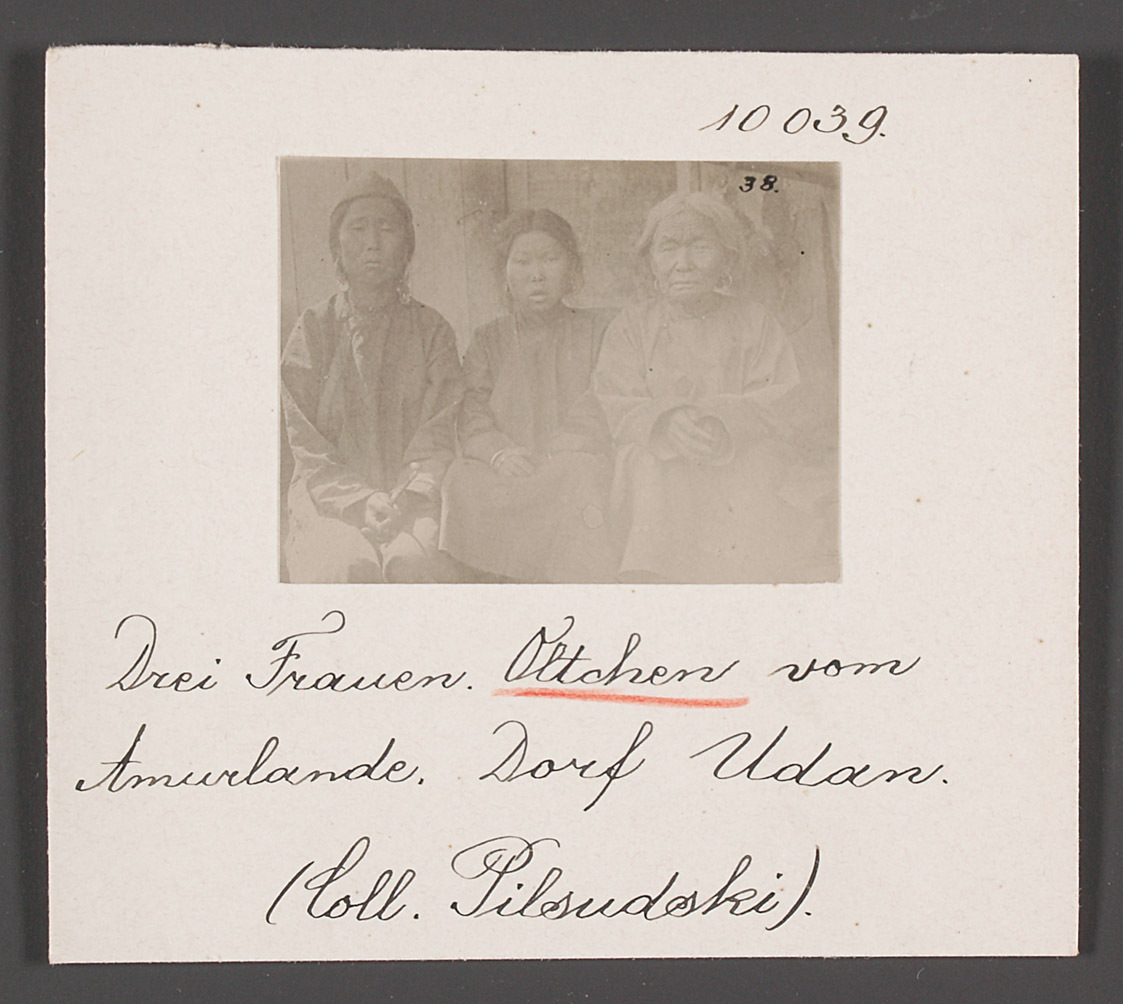 10 039.
38.
Drei Frauen. Oltchen vom
Amurlande. Dorf Udan.
(Coll. Pilsudski).